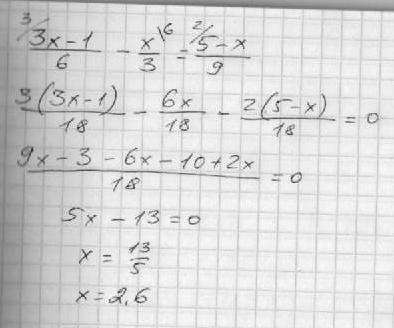 ³/(3x-1)/6 - x\⁶/3 = ²/(5-x)/9
3(3x-1)/18 - 6x/18 - 2(5-x)/18 = 0
(9x-3-6x-10+2x)/18 = 0
5x-13=0
x = 13/5
x = 2,6